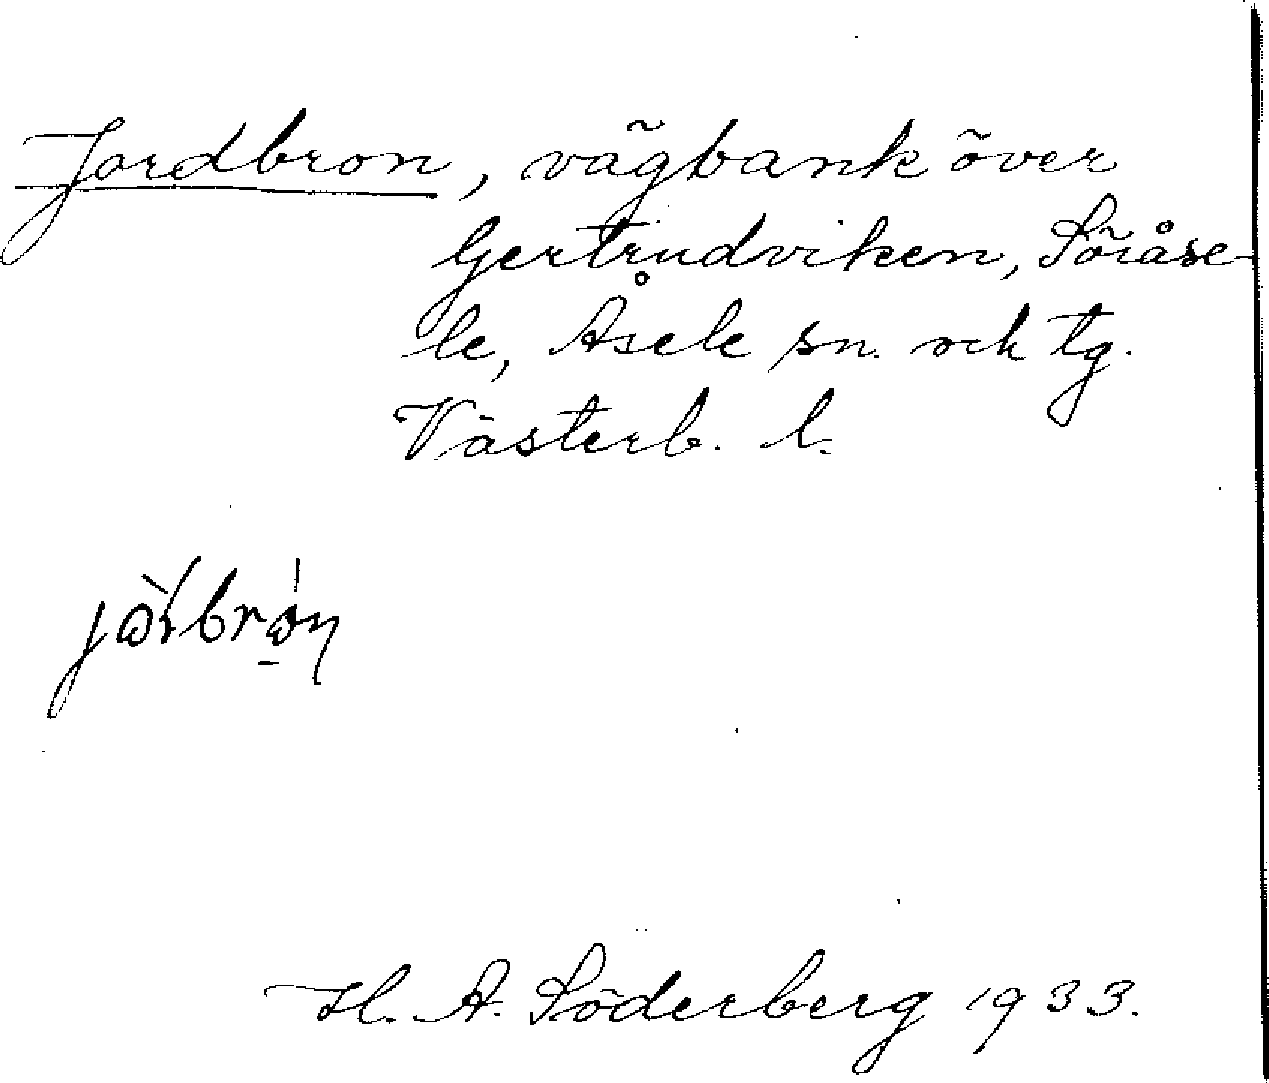 Jordbron, vägbank över
Gertrudviken, Söråse-
le, Åsele sn. och tg.
Västerb. l.
H. A. Söderberg 1933.